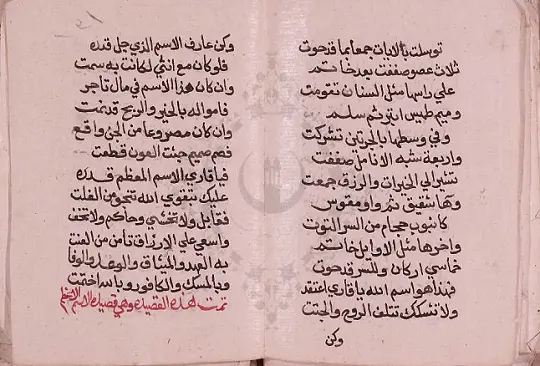 توسلت بالايات جمعا بما قد حوت
ثلاث عصو صففت بعد خاتم
علي راسها مثل السنان تقومت
وميم طميس ابتر ثم سلم
وفي وسطها بالجرتين تشركت
واربعة شبه الانامل صففت
تشير الي الخيرات والرزق جمعت
وهاء شقيق ثم واو مقوس
كانبوب حجام من السر التوت
واخرها مثل الاوايل خاتم
خماسي اركان وللسر قد حوت
فهذا هو اسم الله يا قاري اعتقد
ولا تشكك تتلف الروح والجثت
وكن
وكن عارف الاسم الذي جل قدره
فلو كان مع انثي لكانت به سمت
وان كان هذا الاسم في مال تاجر
فامواله بالخير والربح قد نمت
وان كان مصروعا من الجن واقع
فصم صيم جيئت العون قطعت
فيا قاري الاسم المعظم قدره
عليك بتقوي الله تنجو من الفلت
فقابل ولا تخشي وحاكم ولا تخف
واسعي علي الارزاق تامن من الفنت
به العهد والميثاق والوعد والوفا
وبالمسك والكافور وباسا ختمت
تمت هذه القصيده وهي قصيدة الاسم الاعظم